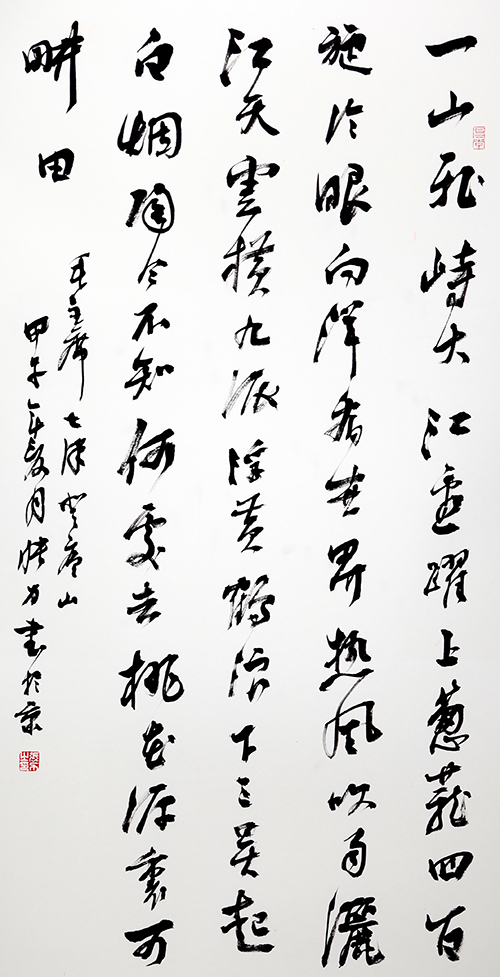 一山飛峙大江邊躍上蔥蘢四百
旋冷眼向洋看世界熱風吹雨灑
江天雲橫九派浮黃鶴浪下三吳起
白烟陶令不知何處去桃花源裏可
畊田
毛主席七律登廬山
甲午年夏月書於京